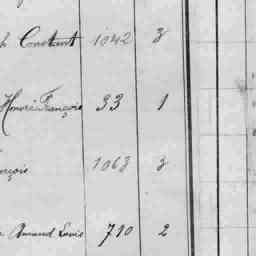 h Constant 1042 3
Honoré François 33 1
nçois 1063 3
Amand Louis 710 2